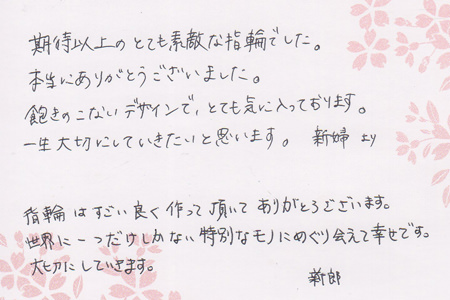 期待以上のとても素敵な指輪でした。
本当にありがとうございました。
飽きのこないデザインで、とても気に入っております。
一生大切にしていきたいと思います。 新婦 より
指輪はすごい良く作って頂いてありがとうございます。
世界に一つだけしかない特別なモノにめぐり会えて幸せです。
大切にしていきます。
新郎